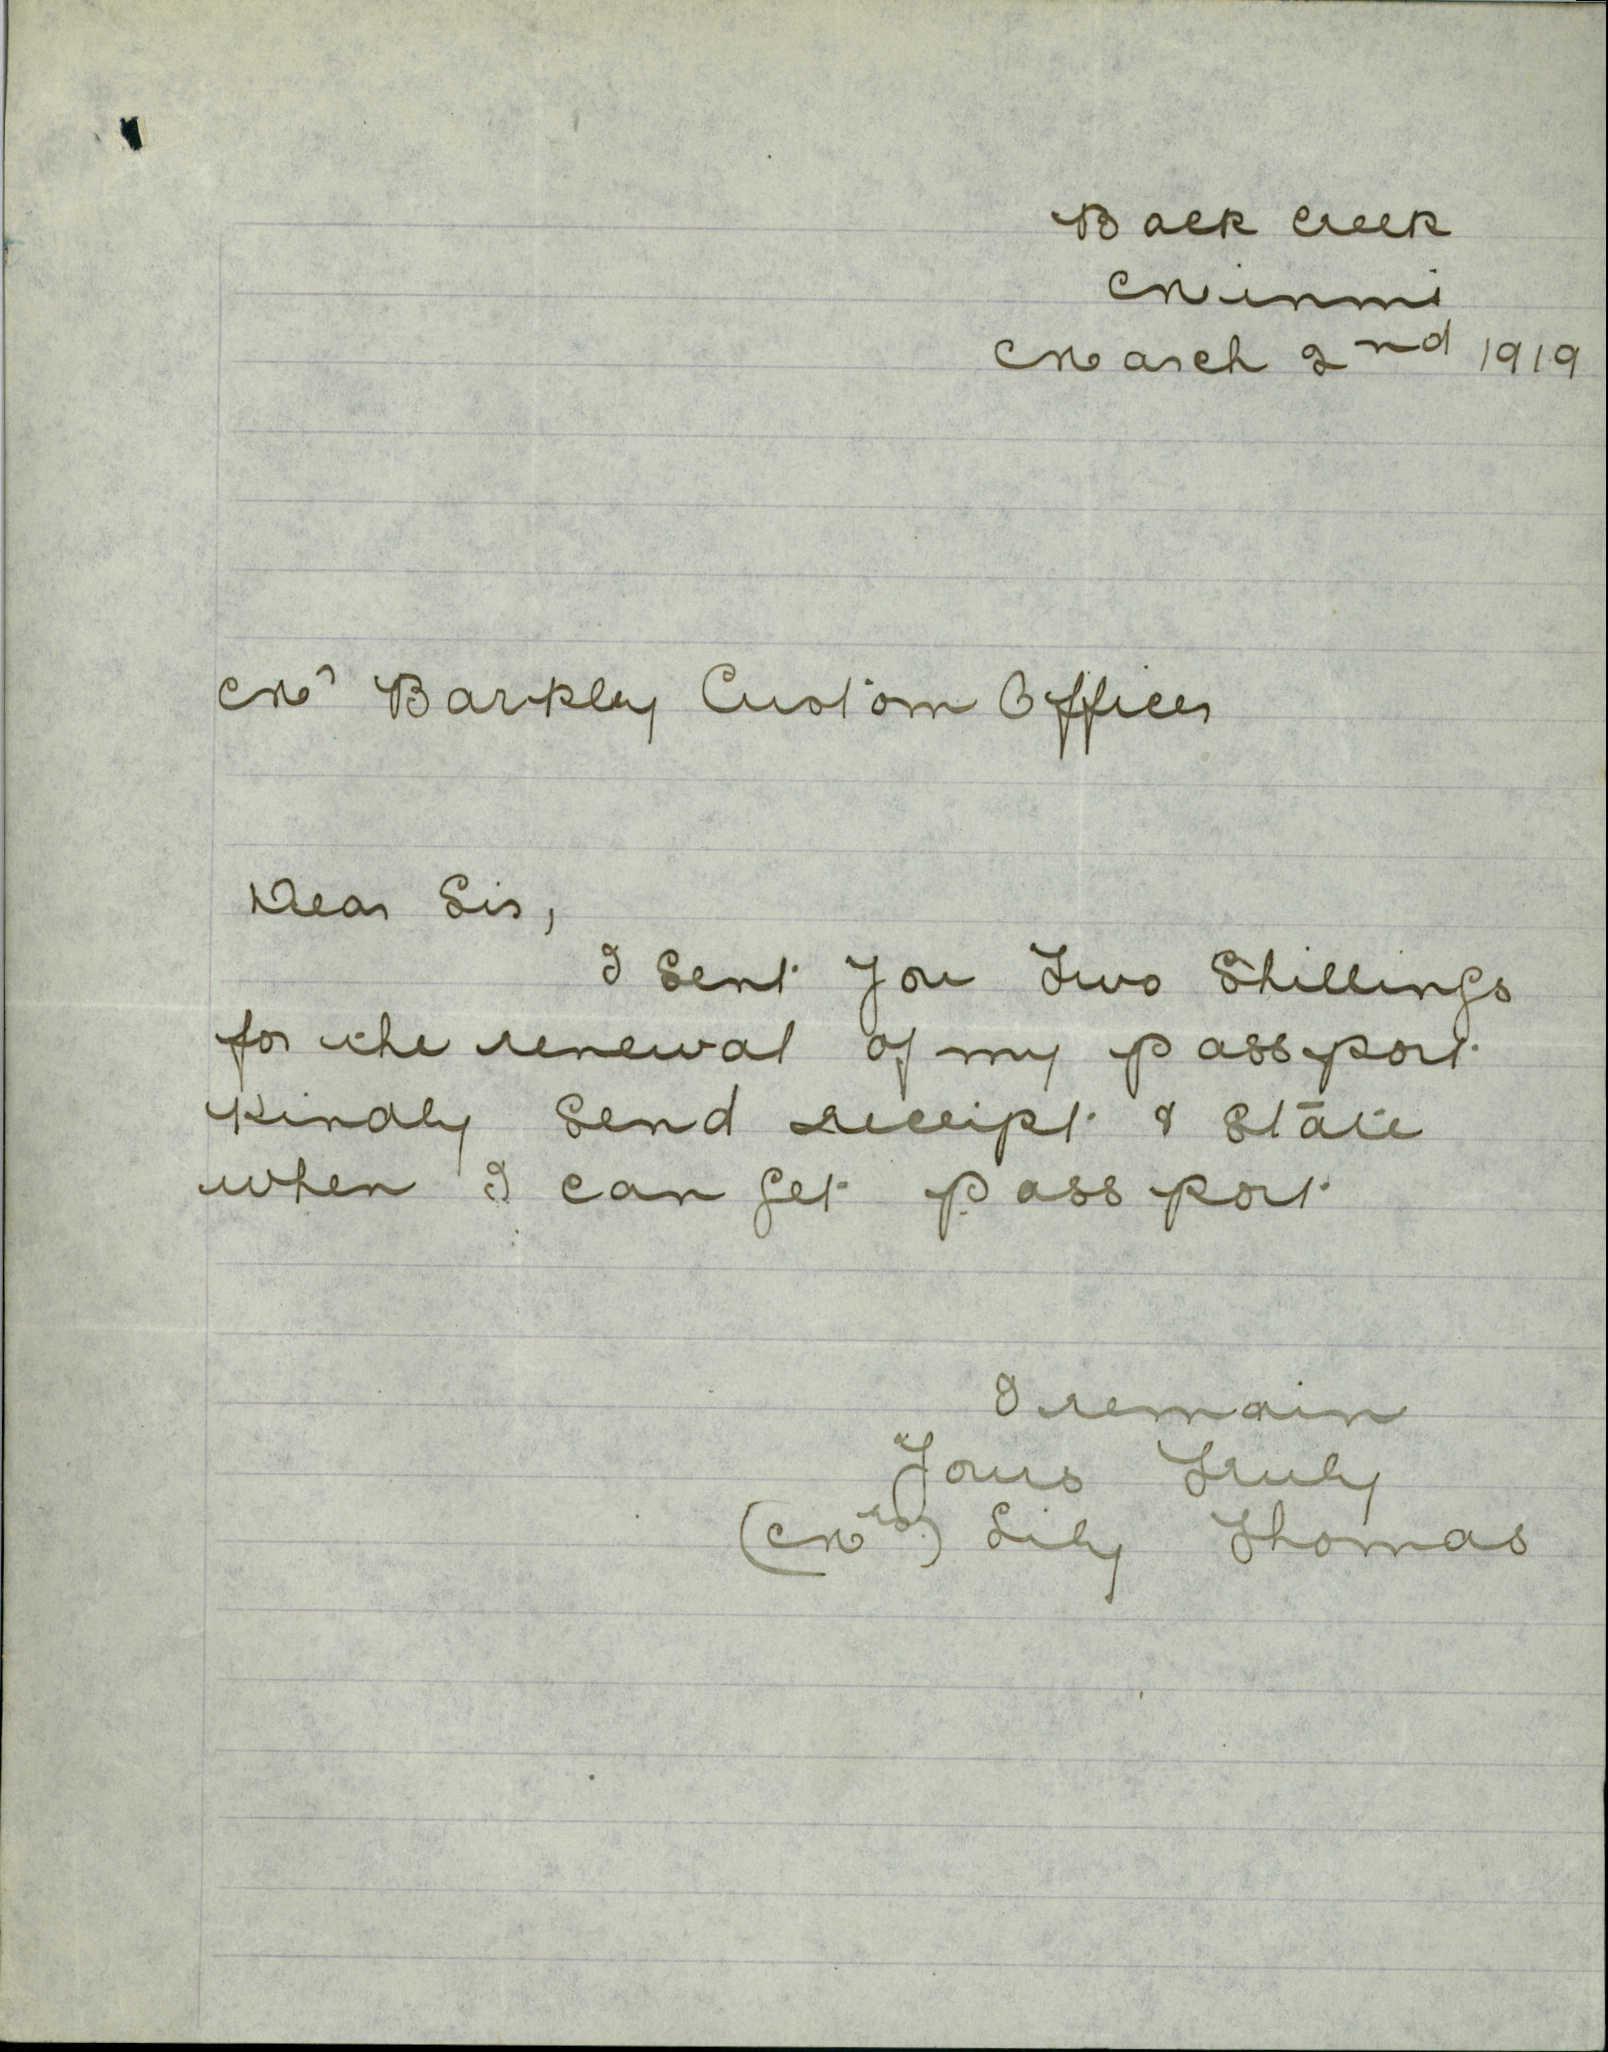 Back Creek
Minmi
March 2nd 1919
Mr Barkley Custom Officer
Dear Sir,
I Sent you Two Shillings
for the renewal of my passport
Kindly Send receipt & State
when I can get passport
I remain
Yours Truly
(Mrs) Lily Thomas